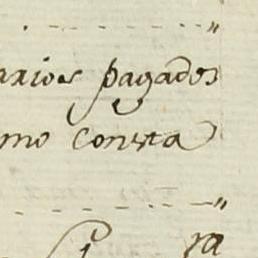 arios pagados
mo consta
ra